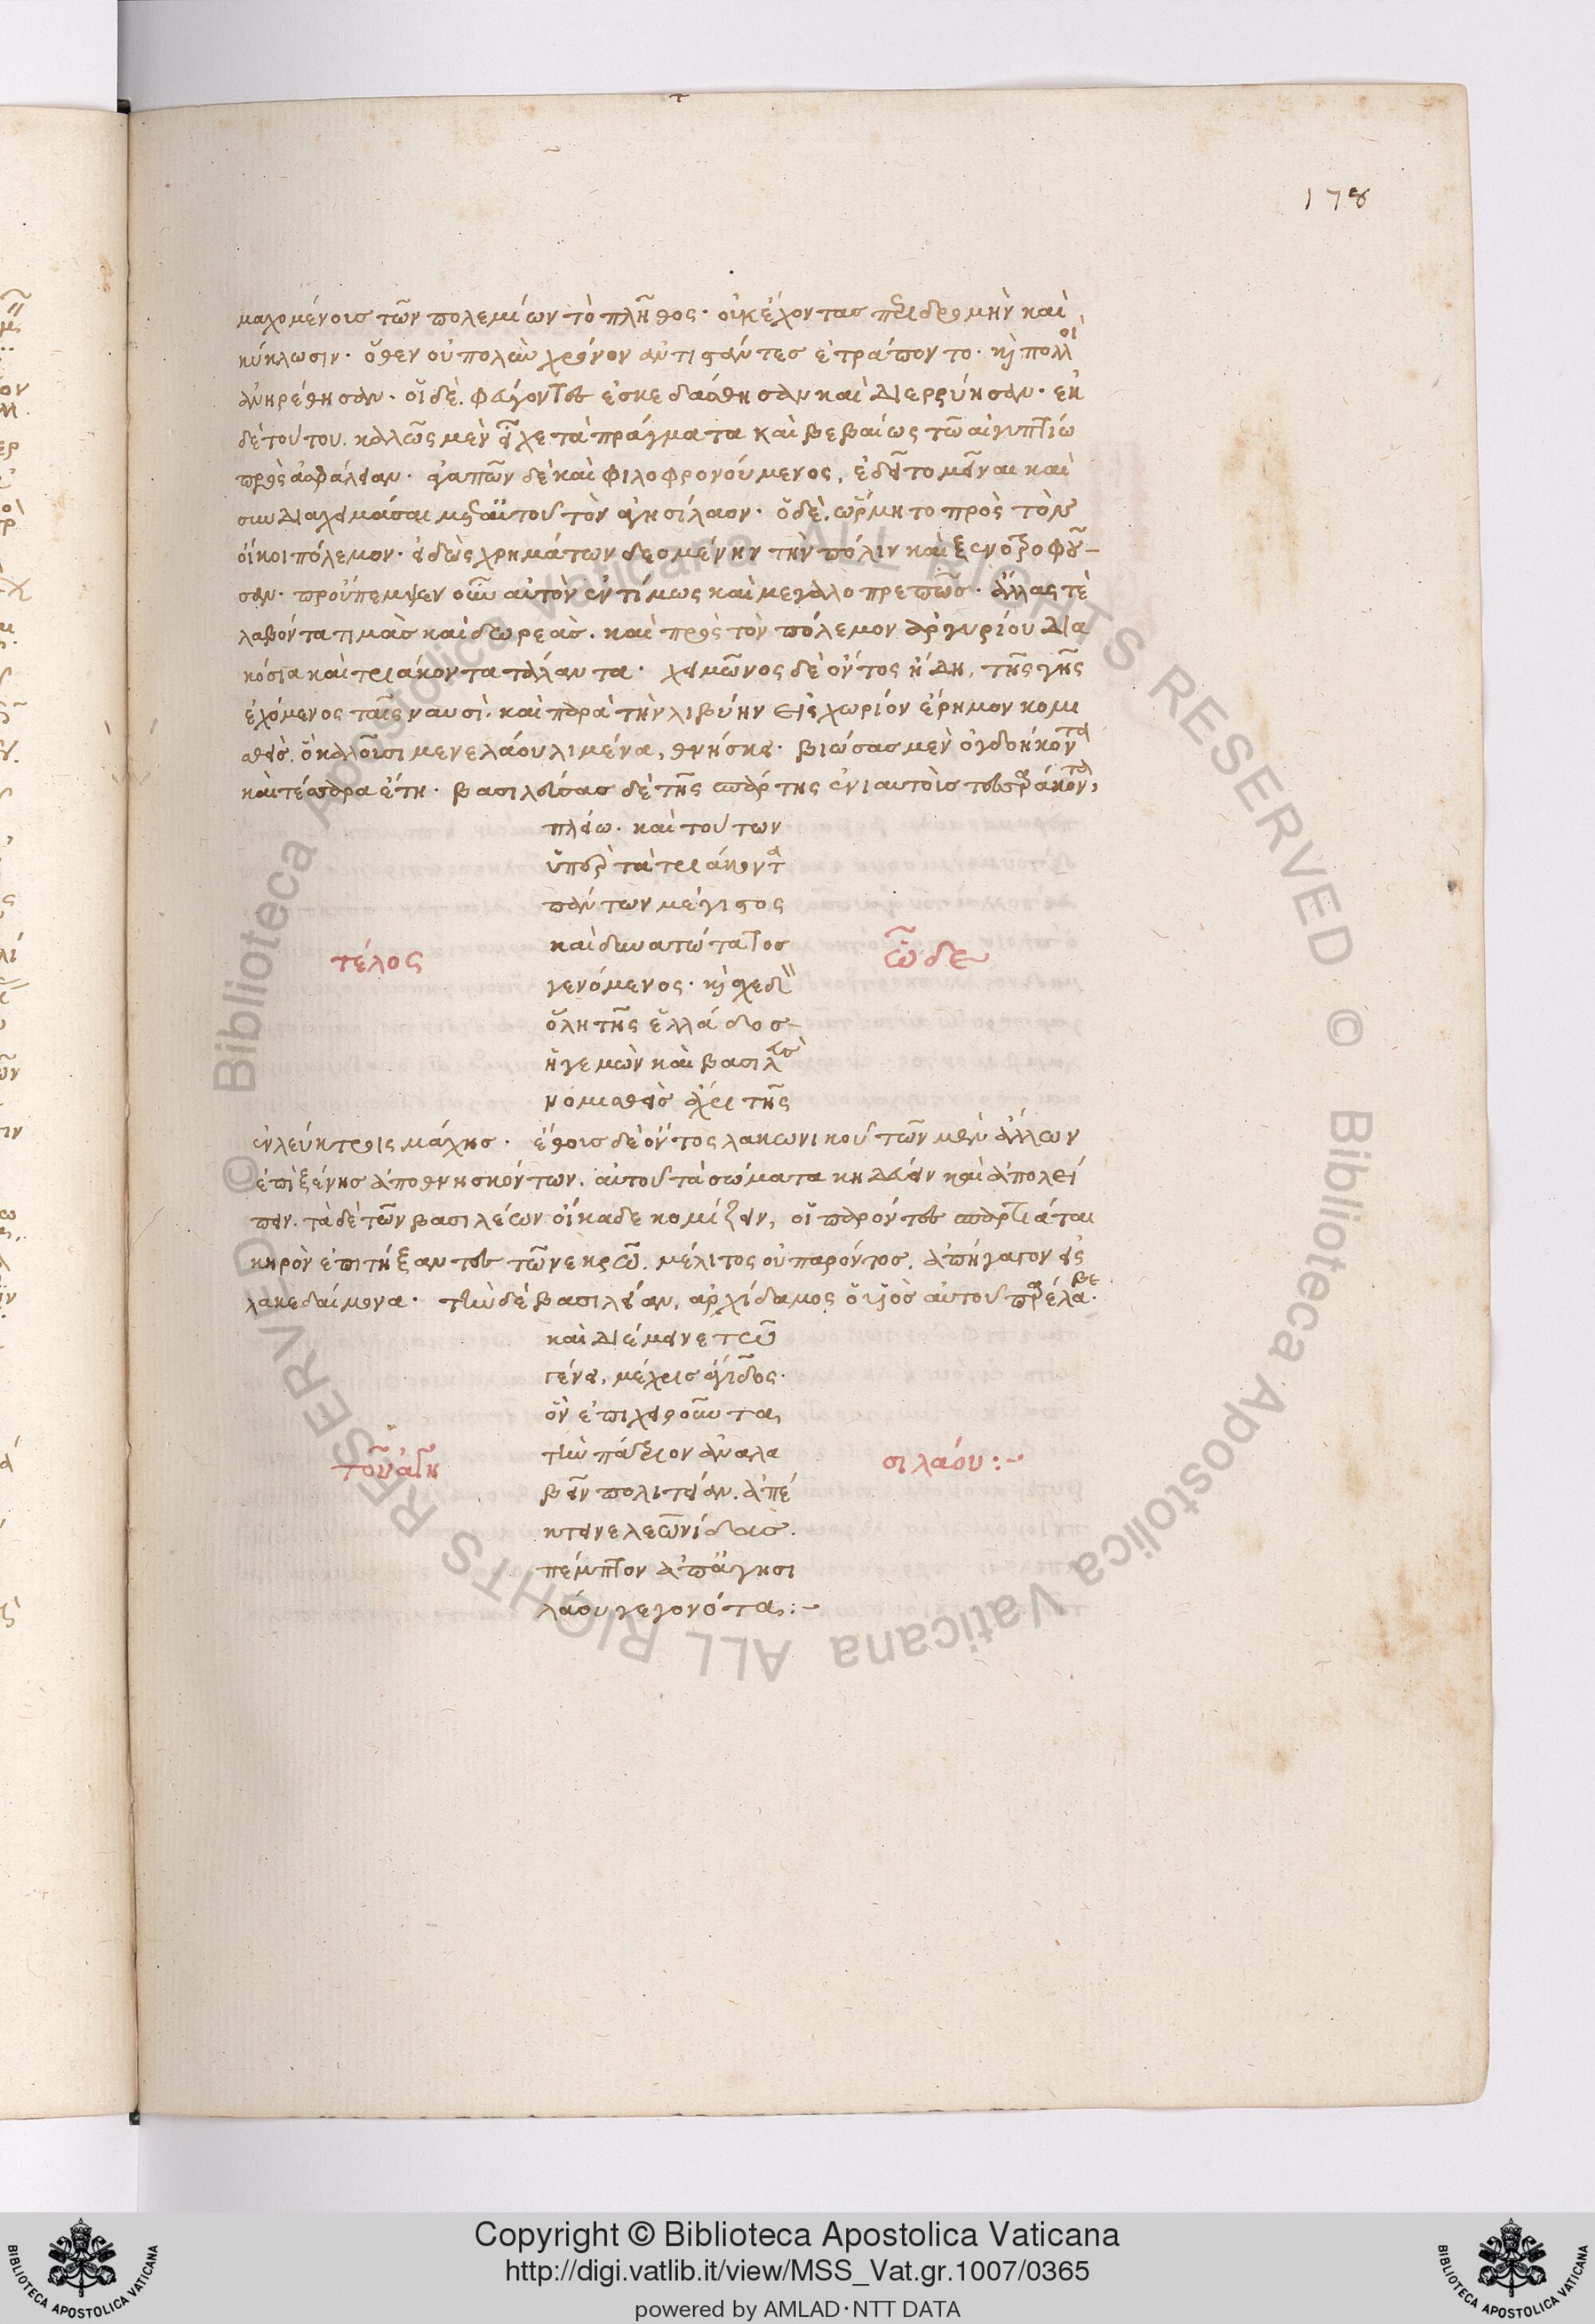 178
μαχομένοις τῶν πολεμίων τὸ πλῆθος· οὐκ ἔχοντας περιδρομὴν καὶ
κύκλωσιν· ὅθεν οὐ πολὺν χρόνον ἀντιστάντες ἐτράποντο· κὶ πολλοὶ
ἀνηρέθησαν· οἱ δὲ φεύγοντες ἐσκεδάσθησαν καὶ διερρύησαν· ἐκ
δὲ τούτου. καλῶς μὲν εἶχε τὰ πράγματα καὶ βεβαίως τῶ αἰγυπτίω
πρὸς ἀσφάλειαν· ἀγαπῶν δὲ καὶ φιλοφρονούμενος, ἐδεῖτο μεῖναι καὶ
συνδιαχειμάσαι μετ' αὐτοῦ τὸν ἀγησίλαον· ὁ δὲ. ὥρμητο πρὸς τὸν
οἴκοι πόλεμον· εἰδὼς χρημάτων δεομένην τὴν πόλιν καὶ ξενοτροφοῦ-
σαν· προὔπεμψεν οὖν αὐτὸν ἐντίμως καὶ μεγαλοπρεπῶς· ἄλλας τὲ
λαβόντα τιμὰς καὶ δωρεὰς. καὶ πρὸς τὸν πόλεμον ἀργυρίου δια
κόσια καὶ τριάκοντα τάλαντα· χειμῶνος δὲ ὄντος ἤδη, τῆς γῆς
ἐχόμενος ταῖς ναυσὶ. καὶ παρὰ τὴν λιβύην εἰς χωρίον ἔρημον κομι
σθεὶς. ὃ καλοῦσι μενελάου λιμένα, θνήσκει· βιώσας μὲν ὀγδοήκοντα
καὶ τέσσαρα ἔτη· βασιλεύσας δὲ τῆς σπάρτης ἑνὶ αὐτοῖς τεσσαράκοντα,
πλέω. καὶ τούτων
ὑπὲρ τὰ τριάκοντα
πάντων μέγιστος
καὶ δυνατώτατος
γενόμενος· κὶ σχεδὸν
ὅλης τῆς ἑλλάδος-
ἡγεμὼν καὶ βασιλεὺς
νομισθεὶς ἄχρι τῆς
τέλος ὧδε
ἐν λεύκτροις μάχης· ἔθους δὲ ὄντος λακωνικοῦ τῶν μὲν ἄλλων
ἐπὶ ξένης ἀποθνησκόντων. αὐτοῦ τὰ σώματα κηδεύειν καὶ ἀπολεί
πειν. τὰ δὲ τῶν βασιλέων οἴκαδε κομίζειν, οἱ παρόντες σπαρτιάται
κηρὸν ἐπιτήξαντες τῶ νεκρῶ. μέλιτος οὐ παρόντος. ἀπήγαγον εἰς
λακεδαίμονα· τὴν δὲ βασιλείαν, ἀρχίδαμος ὁ υἱὸς αὐτοῦ παρέλαβε·
καὶ διέμεινε τῶ
γένει, μέχρις ἄγιδος·
ὃν ἐπιχειροῦντα,
τὴν πάτριον ἀναλα
βεῖν πολιτείαν. ἀπέ
κτεινε λεωνίδας.
πέμπτον ἀπ' ἀγησι
λάου γεγονότα:~
τοῦ ἀγη σιλάου:~
© Biblioteca Apostolica Vaticana ALL RIGHTS RESERVED © Biblioteca Apostolica Vaticana ALL RIGHTS RESERVED
Copyright © Biblioteca Apostolica Vaticana
http://digi.vatlib.it/view/MSS_Vat.gr.1007/0365
powered by AMLAD·NTT DATA
BIBLIOTECA APOSTOLICA VATICANA
BIBLIOTECA APOSTOLICA VATICANA